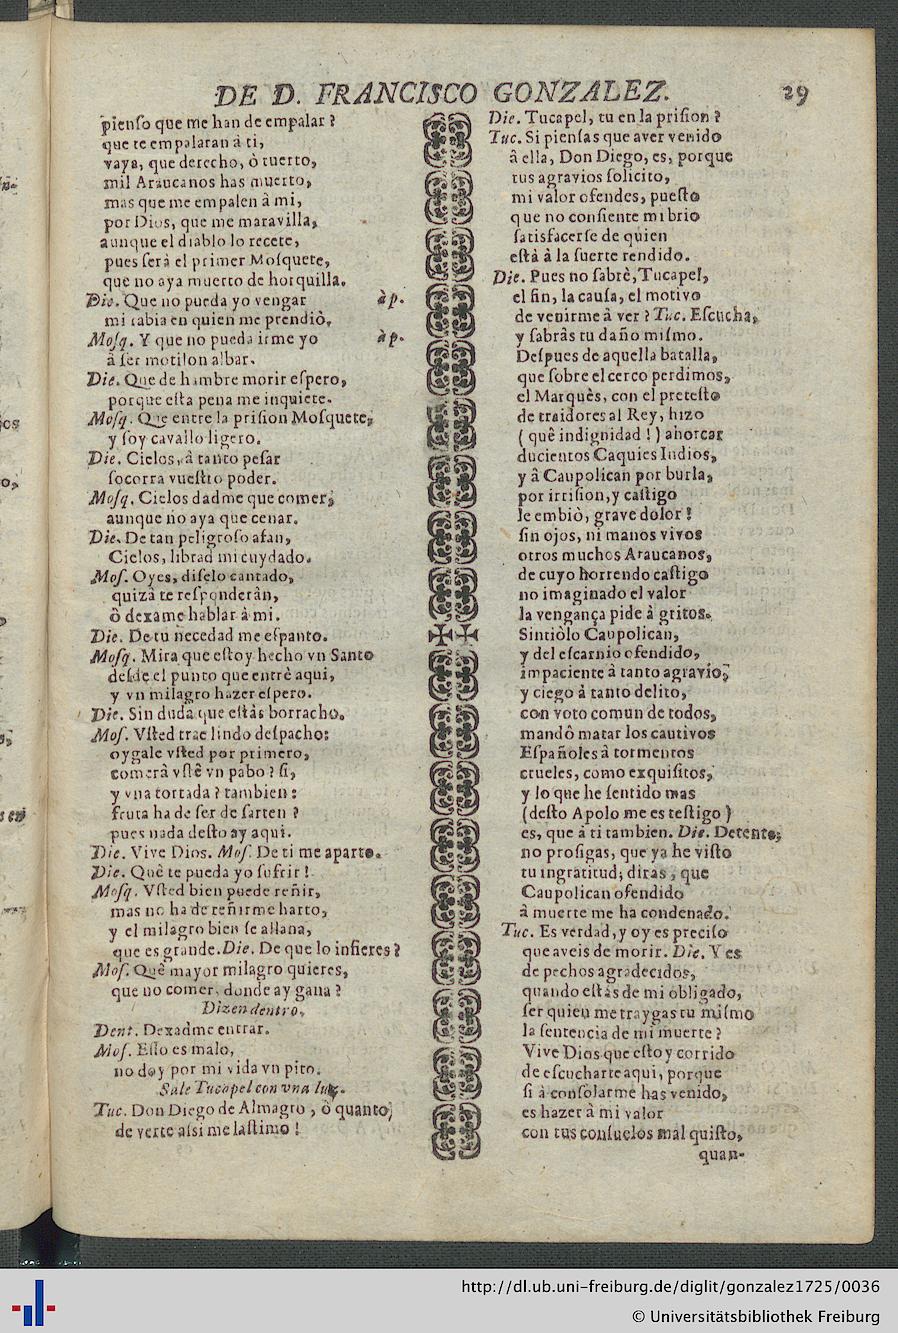 DE D. FRANCISCO GONZALEZ. 29
pienſo que me han de empalar?
que te empalaran à ti,
vaya, que derecho, ò tuerto,
mil Araucanos has muerto,
mas que me empalen à mi,
por Dios, que me maravilla,
aunque el diablo lo recete,
pues ſerà el primer Moſquete,
que no aya muerto de horquilla.
Die. Que no pueda yo vengar àp.
mi rabia en quien me prendiò,
Moſq. Y que no pueda irme yo àp.
à ſer motilon albar.
Die. Que de hambre morir eſpero,
porque eſta pena me inquiete.
Moſq. Que entre la priſion Moſquete,
y ſoy cavallo ligero.
Die. Cielos, à tanto peſar
ſocorra vueſtro poder.
Moſq. Cielos dadme que comer,
aunque no aya que cenar.
Die. De tan peligroſo afan,
Cielos, librad mi cuydado.
Moſ. Oyes, diſelo cantado,
quizà te reſponderàn,
ò dexame hablar à mi.
Die. De tu necedad me eſpanto.
Moſq. Mira que eſtoy hecho vn Santo
deſde el punto que entrè aqui,
y vn milagro hazer eſpero.
Die. Sin duda que eſtàs borracho.
Moſ. Vſted trae lindo deſpacho:
oygale vſted por primero,
comerà vſtè vn pabo? ſi,
y vna tortada? tambien:
fruta ha de ſer de ſarten?
pues nada deſto ay aqui.
Die. Vive Dios. Moſ. De ti me aparto.
Die. Què te pueda yo ſufrir!
Moſq. Vſted bien puede reñir,
mas no ha de reñirme harto,
y el milagro bien ſe allana,
que es grande. Die. De que lo infieres?
Moſ. Què mayor milagro quieres,
que no comer, donde ay gana?
Dizen dentro.
Dent. Dexadme entrar.
Moſ. Eſſo es malo,
no doy por mi vida vn pito.
Sale Tucapel con vna luz.
Tuc. Don Diego de Almagro, ò quanto,
de verte aſsi me laſtimo!
Die. Tucapel, tu en la priſion?
Tuc. Si pienſas que aver venido
à ella, Don Diego, es, porque
tus agravios ſolicito,
mi valor ofendes, pueſto
que no conſiente mi brio
ſatisfacerſe de quien
eſtà à la ſuerte rendido.
Die. Pues no ſabrè, Tucapel,
el fin, la cauſa, el motivo
de venirme à ver? Tuc. Eſcucha,
y ſabràs tu daño miſmo.
Deſpues de aquella batalla,
que ſobre el cerco perdimos,
el Marquès, con el preteſto
de traidores al Rey, hizo
(què indignidad!) ahorcar
ducientos Caquies Indios,
y à Caupolican por burla,
por irriſion, y caſtigo
le embiò, grave dolor!
ſin ojos, ni manos vivos
otros muchos Araucanos,
de cuyo horrendo caſtigo
no imaginado el valor
la vengança pide à gritos.
Sintiòlo Caupolican,
y del eſcarnio ofendido,
impaciente à tanto agravio,
y ciego à tanto delito,
con voto comun de todos,
mandò matar los cautivos
Eſpañoles à tormentos
crueles, como exquiſitos,
y lo que he ſentido mas
(deſto Apolo me es teſtigo)
es, que à ti tambien. Die. Detente,
no proſigas, que ya he viſto
tu ingratitud; diràs, que
Caupolican ofendido
à muerte me ha condenado.
Tuc. Es verdad, y oy es preciſo
que aveis de morir. Die. Y es
de pechos agradecidos,
quando eſtàs de mi obligado,
ſer quien me traygas tu miſmo
la ſentencia de mi muerte?
Vive Dios que eſtoy corrido
de eſcucharte aqui, porque
ſi à conſolarme has venido,
es hazer à mi valor
con tus conſuelos mal quiſto,
quan-
http://dl.ub.uni-freiburg.de/diglit/gonzalez1725/0036
© Universitätsbibliothek Freiburg